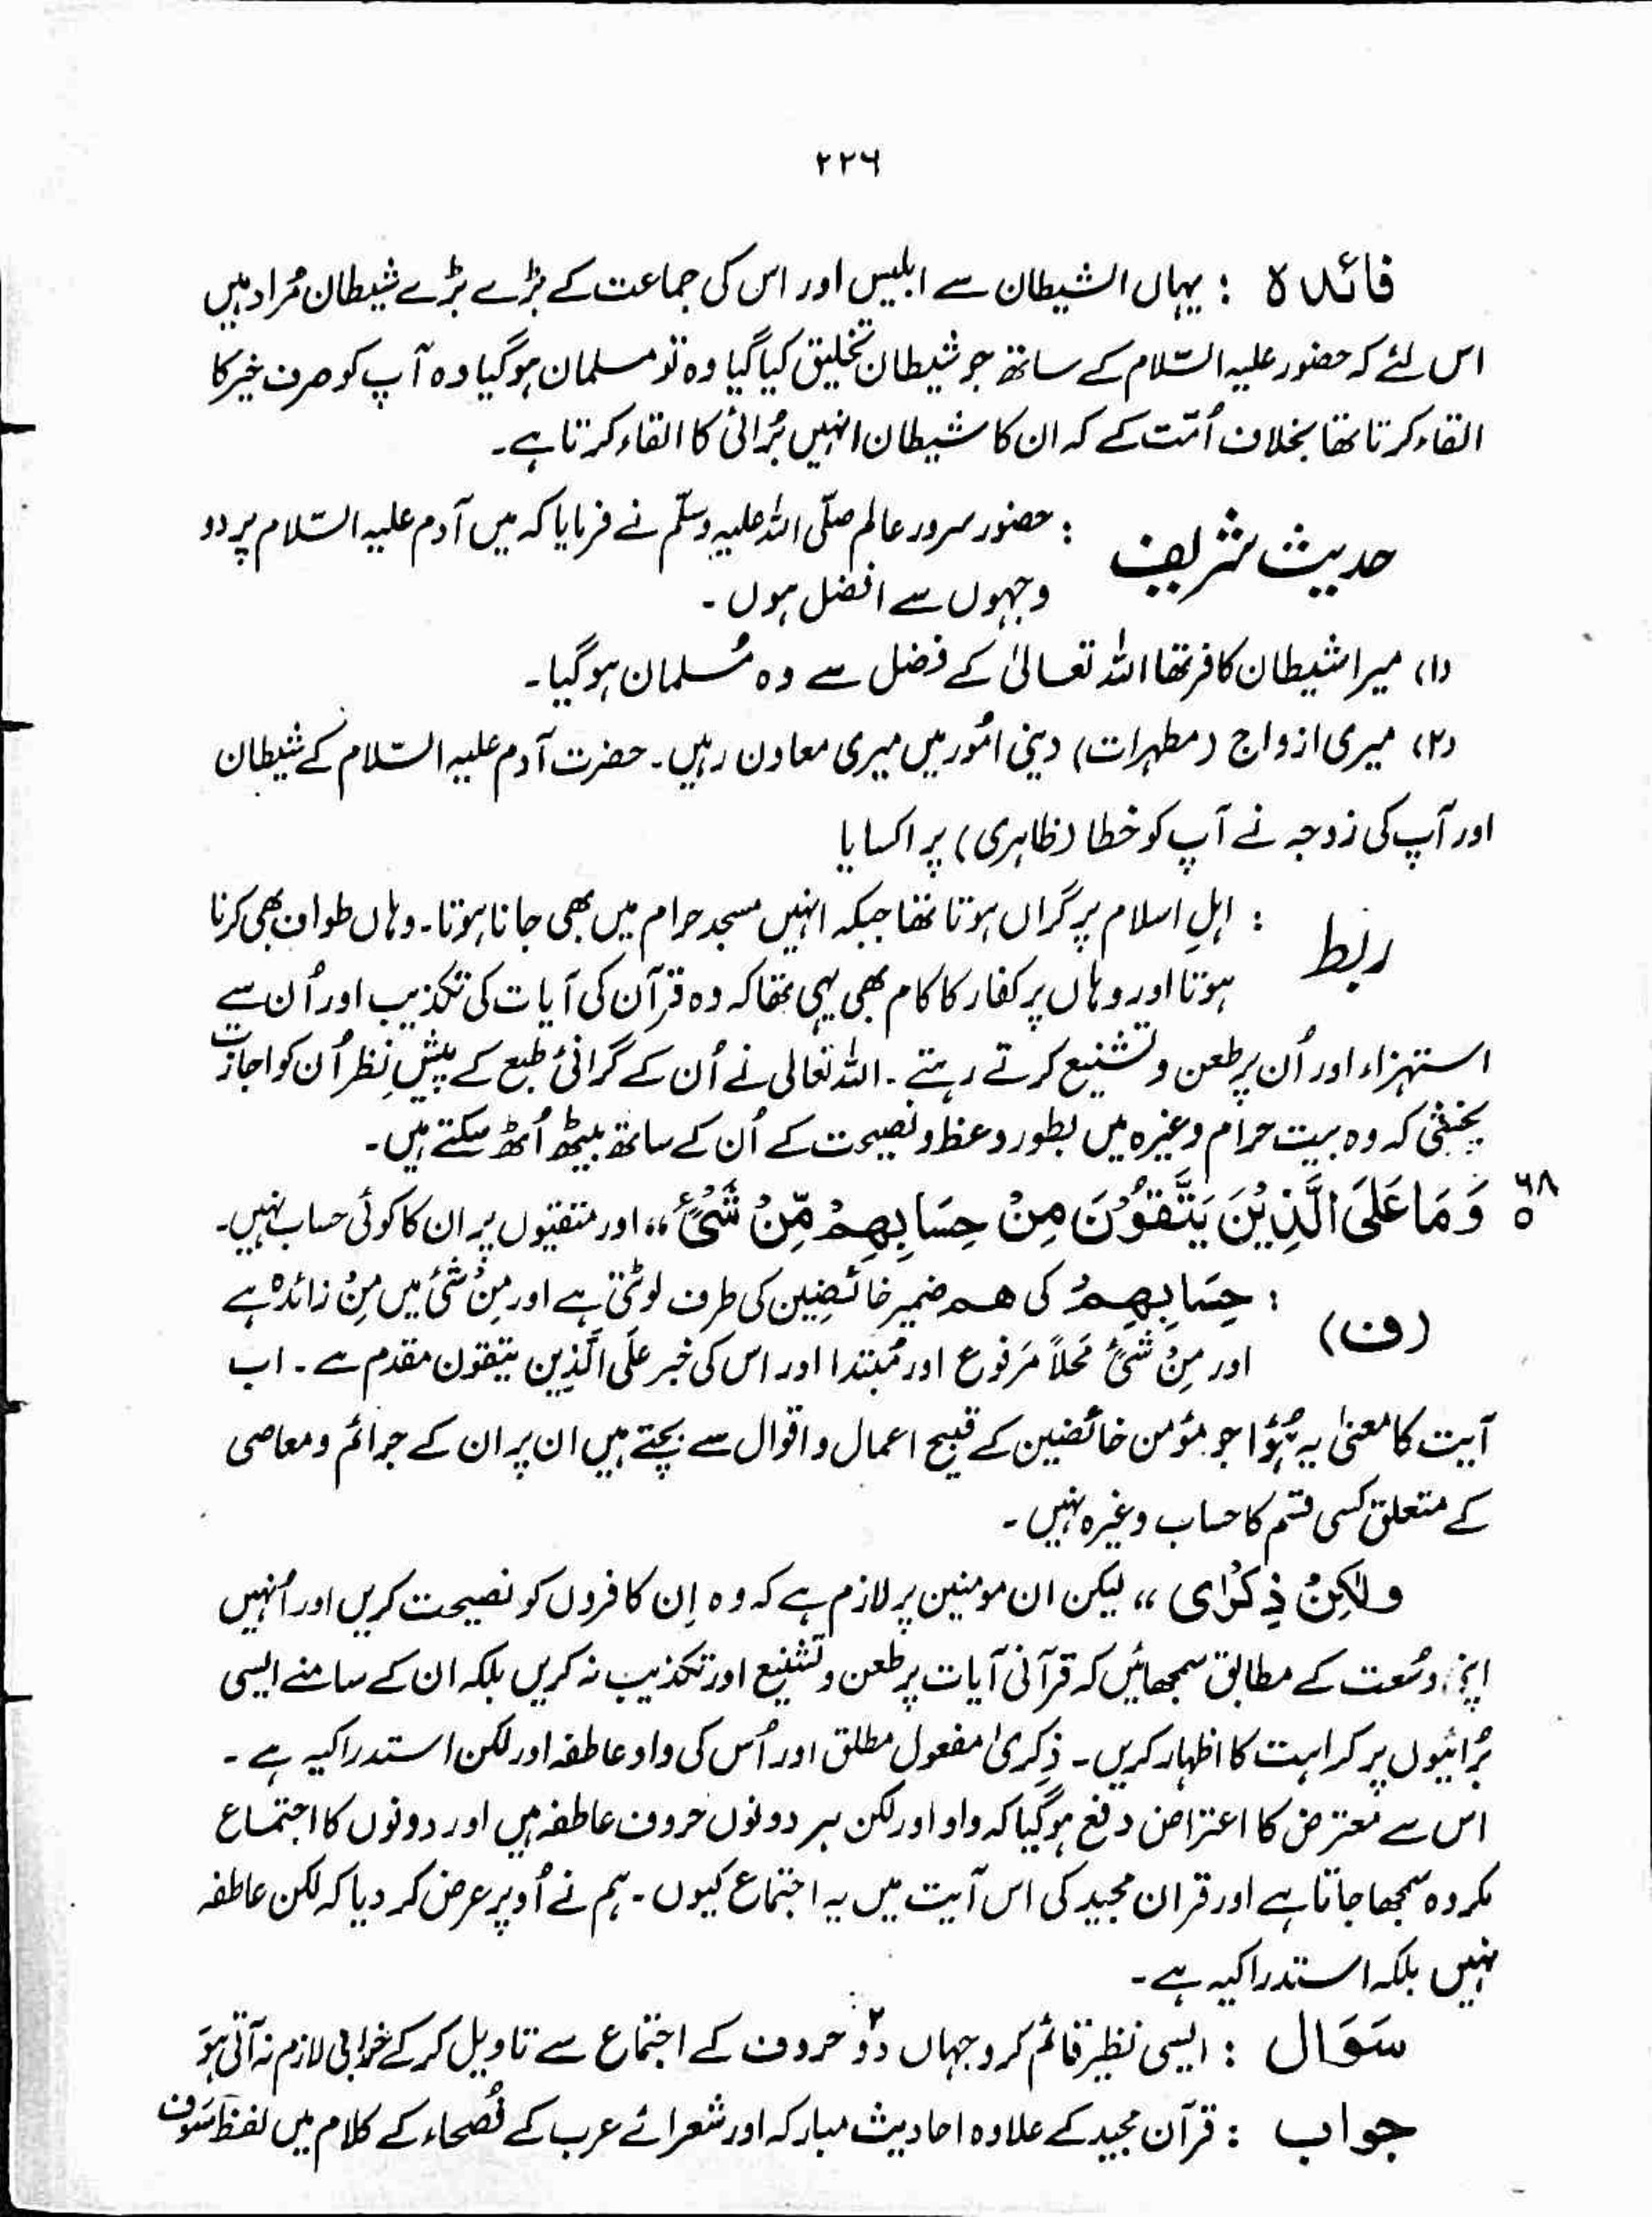 ۲۲۶
فائدہ : یہاں الشیطان سے ابلیس اور اس کی جماعت کے بڑے بڑے شیطان مُراد ہیں
اس لئے کہ حضور علیہ السّلام کے ساتھ جو شیطان تخلیق کیا گیا وہ تو مسلمان ہو گیا وہ آپ کو صرف خیر کا
القاء کرتا تھا بخلاف اُمّت کے کہ ان کا شیطان انہیں بُرائی کا القاء کرتا ہے۔
حدیث شریف : حضور سرور عالم صلّی اللہ علیہ وسلّم نے فرمایا کہ میں آدم علیہ السّلام پر دو
وجہوں سے افضل ہوں ۔
(۱) میرا شیطان کافر تھا اللہ تعالیٰ کے فضل سے وہ مُسلمان ہو گیا۔
(۲) میری ازواج (مطہرات) دینی امُور میں میری معاون رہیں۔ حضرت آدم علیہ السّلام کے شیطان
اور آپ کی زوجہ نے آپ کو خطا (ظاہری) پر اکسایا
ربط : اہلِ اسلام پر گراں ہوتا تھا جبکہ انہیں مسجد حرام میں بھی جانا ہوتا۔ وہاں طواف بھی کرنا
ہوتا اور وہاں پر کفار کا کام بھی یہی تھا کہ وہ قرآن کی آیات کی تکذیب اور اُن سے
استہزاء اور اُن پر طعن و تشنیع کرتے رہتے ۔ اللہ تعالی نے اُن کے گرانئ طبع کے پیشِ نظر اُن کو اجازت
بخشی کہ وہ بیت حرام وغیرہ میں بطور وعظ و نصیحت کے اُن کے ساتھ بیٹھ اُٹھ سکتے ہیں۔
۶۸ وَمَا عَلَی الَّذِیْنَ یَتَّقُوْنَ مِنْ حِسَابِهِمْ مِّنْ شَیْءٍ ،، اور متقیوں پر ان کا کوئی حساب نہیں۔
(ف) : حِسَابِهِمْ کی هم ضمیر خائضین کی طرف لوٹتی ہے اور مِنْ شَیْءٍ میں مِنْ زائدہ ہے
اور مِنْ شَیْءٍ مَحلاً مَرفوع اور مُبتدا اور اس کی خبر عَلَی الَّذِین یتقون مقدم ہے ۔ اب
آیت کا معنیٰ یہ ہُؤا جو مؤمن خائضین کے قبیح اعمال و اقوال سے بچتے ہیں ان پر ان کے جرائم و معاصی
کے متعلق کسی قسم کا حساب وغیرہ نہیں ۔
ولٰکِنْ ذِکْرٰی ،، لیکن ان مومنین پر لازم ہے کہ وہ اِن کافروں کو نصیحت کریں اور اُنہیں
اپنی وسُعت کے مطابق سمجھائیں کہ قرآنی آیات پر طعن و تشنیع اور تکذیب نہ کریں بلکہ ان کے سامنے ایسی
بُرائیوں پر کراہت کا اظہار کریں ۔ ذِکریٰ مفعول مطلق اور اُس کی واو عاطفہ اور لکن استدراکیہ ہے ۔
اس سے معترض کا اعتراض دفع ہو گیا کہ واو اور لکن ہر دونوں حروف عاطفہ ہیں اور دونوں کا اجتماع
مکروہ سمجھا جاتا ہے اور قران مجید کی اس آیت میں یہ اجتماع کیوں ۔ ہم نے اُوپر عرض کر دیا کہ لکن عاطفہ
نہیں بلکہ استدراکیہ ہے ۔
سَوَال : ایسی نظیر قائم کرو جہاں دو۲ حروف کے اجتماع سے تاویل کر کے خرابی لازم نہ آتی ہو
جواب : قرآن مجید کے علاوہ احادیث مبارکہ اور شعرائے عرب کے فُصحاء کے کلام میں لفظ سَوف